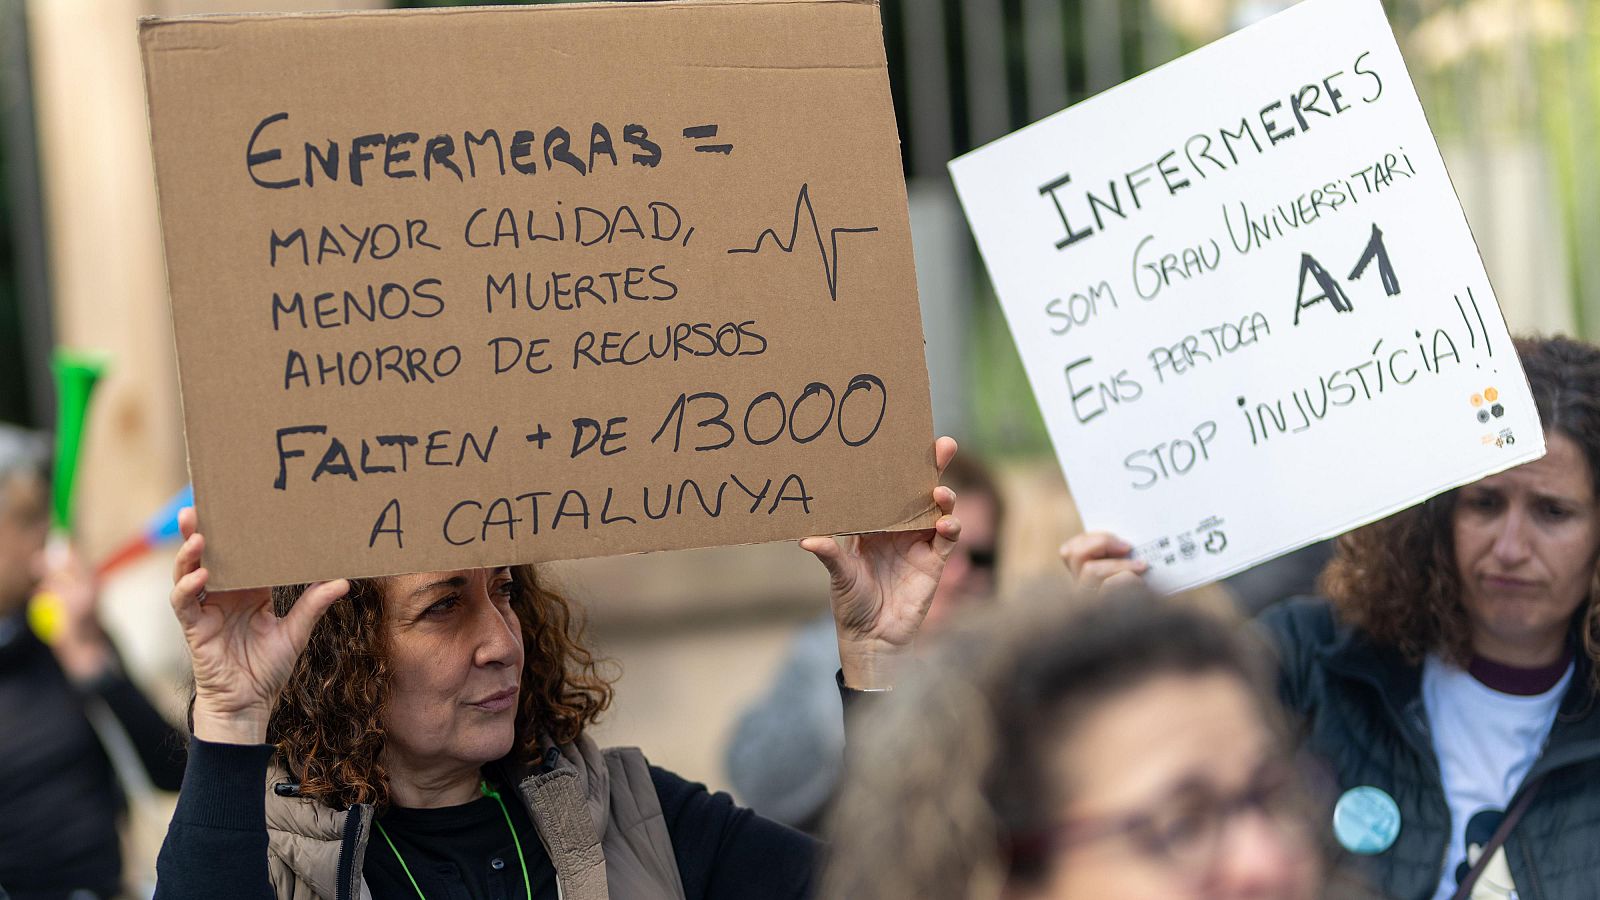 ENFERMERAS =
MAYOR CALIDAD,
MENOS MUERTES
AHORRO DE RECURSOS
FALTEN + DE 13000
A CATALUNYA
INFERMERES
SOM GRAU UNIVERSITARI
ENS PERTOCA A1
STOP INJUSTÍCIA!!